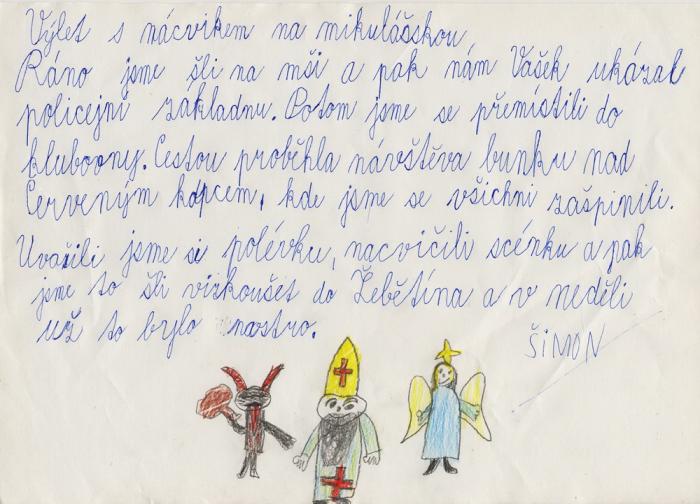 Výlet s nácvikem na mikulášskou
Ráno jsme šli na mši a pak nám Vašek ukázal
policejní základnu. Potom jsme se přemístili do
klubovny. Cestou proběhla návštěva bunku nad
Červeným kopcem, kde jsme se všichni zašpinili.
Uvařili jsme si polévku, nacvičili scénku a pak
jsme to šli vizkoušet do Žebětína a v neděli
už to bylo nastro.
ŠIMON